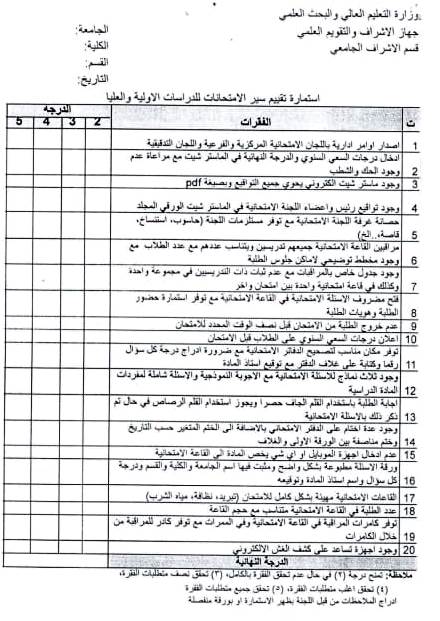 وزارة التعليم العالي والبحث العلمي
جهاز الاشراف والتقويم العلمي
قسم الاشراف الجامعي
الجامعة:
الكلية:
القسم:
التاريخ:
استمارة تقييم سير الامتحانات للدراسات الاولية والعليا
ت الفقرات الدرجة
2 3 4 5
1 اصدار اوامر ادارية باللجان الامتحانية المركزية والفرعية واللجان التدقيقية
ادخال درجات السعي السنوي والدرجة النهائية في الماستر شيت مع مراعاة عدم
2 وجود الحك والشطب
3 وجود ماستر شيت الكتروني يحوي جميع التواقيع وبصيغة pdf
4 وجود تواقيع رئيس واعضاء اللجنة الامتحانية في الماستر شيت الورقي المجلد
حصانة غرفة اللجنة الامتحانية مع توفر مستلزمات اللجنة (حاسوب، استنساخ،
5 قاصة،..الخ)
مراقبين القاعة الامتحانية جميعهم تدريسين ويتناسب عددهم مع عدد الطلاب مع
6 وجود مخطط توضيحي لاماكن جلوس الطلبة
وجود جدول خاص بالمراقبات مع عدم ثبات ذات التدريسيين في مجموعة واحدة
7 وكذلك في قاعة امتحانية واحدة بين امتحان واخر
فتح مضروف الاسئلة الامتحانية في القاعة الامتحانية مع توفر استمارة حضور
8 الطلبة وهويات الطلبة
9 عدم خروج الطلبة من الامتحان قبل نصف الوقت المحدد للامتحان
10 اعلان درجات السعي السنوي على الطلاب قبل الامتحان
توفر مكان مناسب لتصحيح الدفاتر الامتحانية مع ضرورة ادراج درجة كل سؤال
11 رقما وكتابة على غلاف الدفتر مع توقيع استاذ المادة
وجود ثلاث نماذج للاسئلة الامتحانية مع الاجوبة النموذجية والاسئلة شاملة لمفردات
12 المادة الدراسية
اجابة الطلبة باستخدام القلم الجاف حصرا ويجوز استخدام القلم الرصاص في حال تم
13 ذكر ذلك بالاسئلة الامتحانية
وجود عدة اختام على الدفتر الامتحاني بالاضافة الى الختم المتغير حسب التاريخ
14 وختم مناصفة بين الورقة الاولى والغلاف
15 عدم ادخال اجهزة الموبايل او اي شي يخص المادة الى القاعة الامتحانية
ورقة الاسئلة مطبوعة بشكل واضح ومثبت فيها اسم الجامعة والكلية والقسم ودرجة
16 كل سؤال واسم استاذ المادة وتوقيعه
17 القاعات الامتحانية مهيئة بشكل كامل للامتحان (تبريد، نظافة، مياه الشرب)
18 عدد الطلبة في القاعة الامتحانية متناسب مع حجم القاعة
توفر كامرات المراقبة في القاعة الامتحانية وفي الممرات مع توفر كادر للمراقبة من
19 خلال الكامرات
20 وجود اجهزة تساعد على كشف الغش الالكتروني
الدرجة النهائية
ملاحظة: تمنح درجة (٢) في حال عدم تحقق الفقرة بالكامل، (٣) تحقق نصف متطلبات الفقرة،
(٤) تحقق اغلب متطلبات الفقرة، (٥) تحقق جميع متطلبات الفقرة
ادراج الملاحظات من قبل اللجنة بظهر الاستمارة او بورقة منفصلة